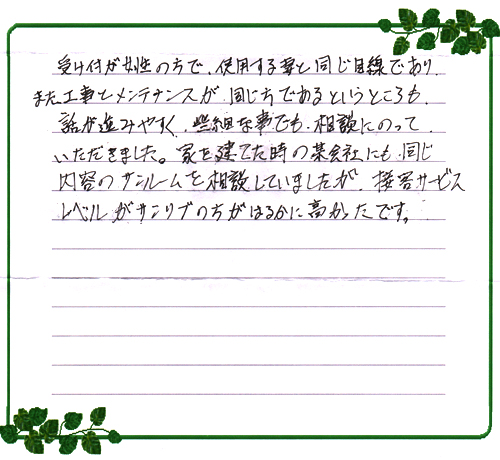 受け付が女性の方で、使用する妻と同じ目線であり、
また工事とメンテナンスが、同じ方であるというところも、
話が進みやすく、些細な事でも、相談にのって
いただきました。家を建てた時の某会社にも、同じ
内容のサンルームを相談していましたが、接客サービス
レベルがサンリブの方がはるかに高かったです。